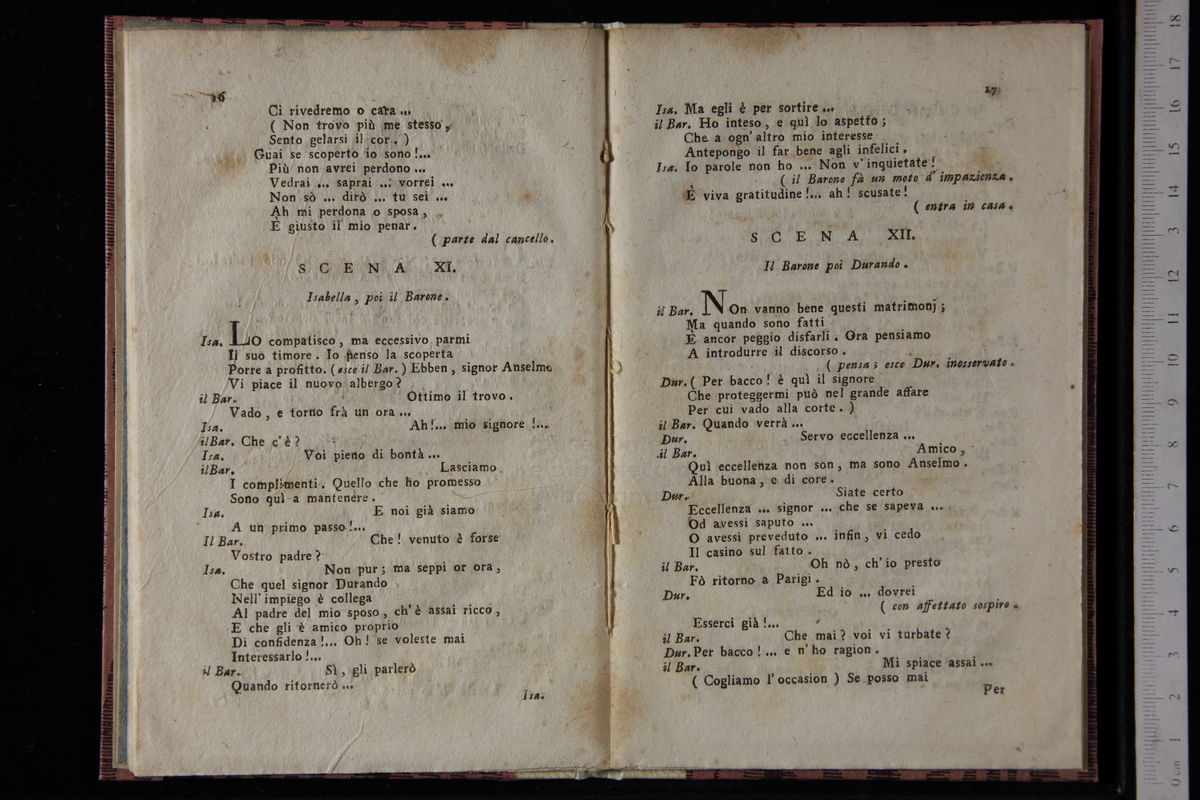 16
Ci rivedremo o cara ...
( Non trovo più me stesso,
Sento gelarsi il cor. )
Guai se scoperto io sono!...
Più non avrei perdono ...
Vedrai ... saprai ... vorrei ...
Non sò ... dirò ... tu sei ...
Ah mi perdona o sposa,
È giusto il mio penar.
( parte dal cancello.
SCENA XI.
Isabella, poi il Barone.
Isa. Lo compatisco, ma eccessivo parmi
Il suo timore. Io penso la scoperta
Porre a profitto. (esce il Bar.) Ebben, signor Anselmo
Vi piace il nuovo albergo?
il Bar. Ottimo il trovo.
Vado, e torno frà un ora ...
Isa. Ah!... mio signore!...
il Bar. Che c'è?
Isa. Voi pieno di bontà ...
il Bar. Lasciamo
I complimenti. Quello che ho promesso
Sono quì a mantenere.
Isa. E noi già siamo
A un primo passo!...
Il Bar. Che! venuto è forse
Vostro padre?
Isa. Non pur; ma seppi or ora,
Che quel signor Durando
Nell'impiego è collega
Al padre del mio sposo, ch'è assai ricco,
E che gli è amico proprio
Di confidenza!... Oh! se voleste mai
Interessarlo!...
il Bar. Sì, gli parlerò
Quando ritornerò ...
Isa.
17
Isa. Ma egli è per sortire ...
il Bar. Ho inteso, e quì lo aspetto;
Che a ogn'altro mio interesse
Antepongo il far bene agli infelici.
Isa. Io parole non ho ... Non v'inquietate!
( il Barone fà un moto d'impazienza.
È viva gratitudine!... ah! scusate!
( entra in casa.
SCENA XII.
Il Barone poi Durando.
il Bar. Non vanno bene questi matrimonj;
Ma quando sono fatti
È ancor peggio disfarli. Ora pensiamo
A introdurre il discorso.
( pensa; esce Dur. inosservato.
Dur. ( Per bacco! è quì il signore
Che proteggermi può nel grande affare
Per cui vado alla corte. )
il Bar. Quando verrà ...
Dur. Servo eccellenza ...
il Bar. Amico,
Quì eccellenza non son, ma sono Anselmo.
Alla buona, e di core.
Dur. Siate certo
Eccellenza ... signor ... che se sapeva ...
Od avessi saputo ...
O avessi preveduto ... infin, vi cedo
Il casino sul fatto.
il Bar. Oh nò, ch'io presto
Fò ritorno a Parigi.
Dur. Ed io ... dovrei
( con affettato sospiro.
Esserci già!...
il Bar. Che mai? voi vi turbate?
Dur. Per bacco! ... e n'ho ragion.
il Bar. Mi spiace assai ...
( Cogliamo l'occasion ) Se posso mai
Per
18
17
16
15
14
13
12
11
10
9
8
7
6
5
4
3
2
1
0 cm